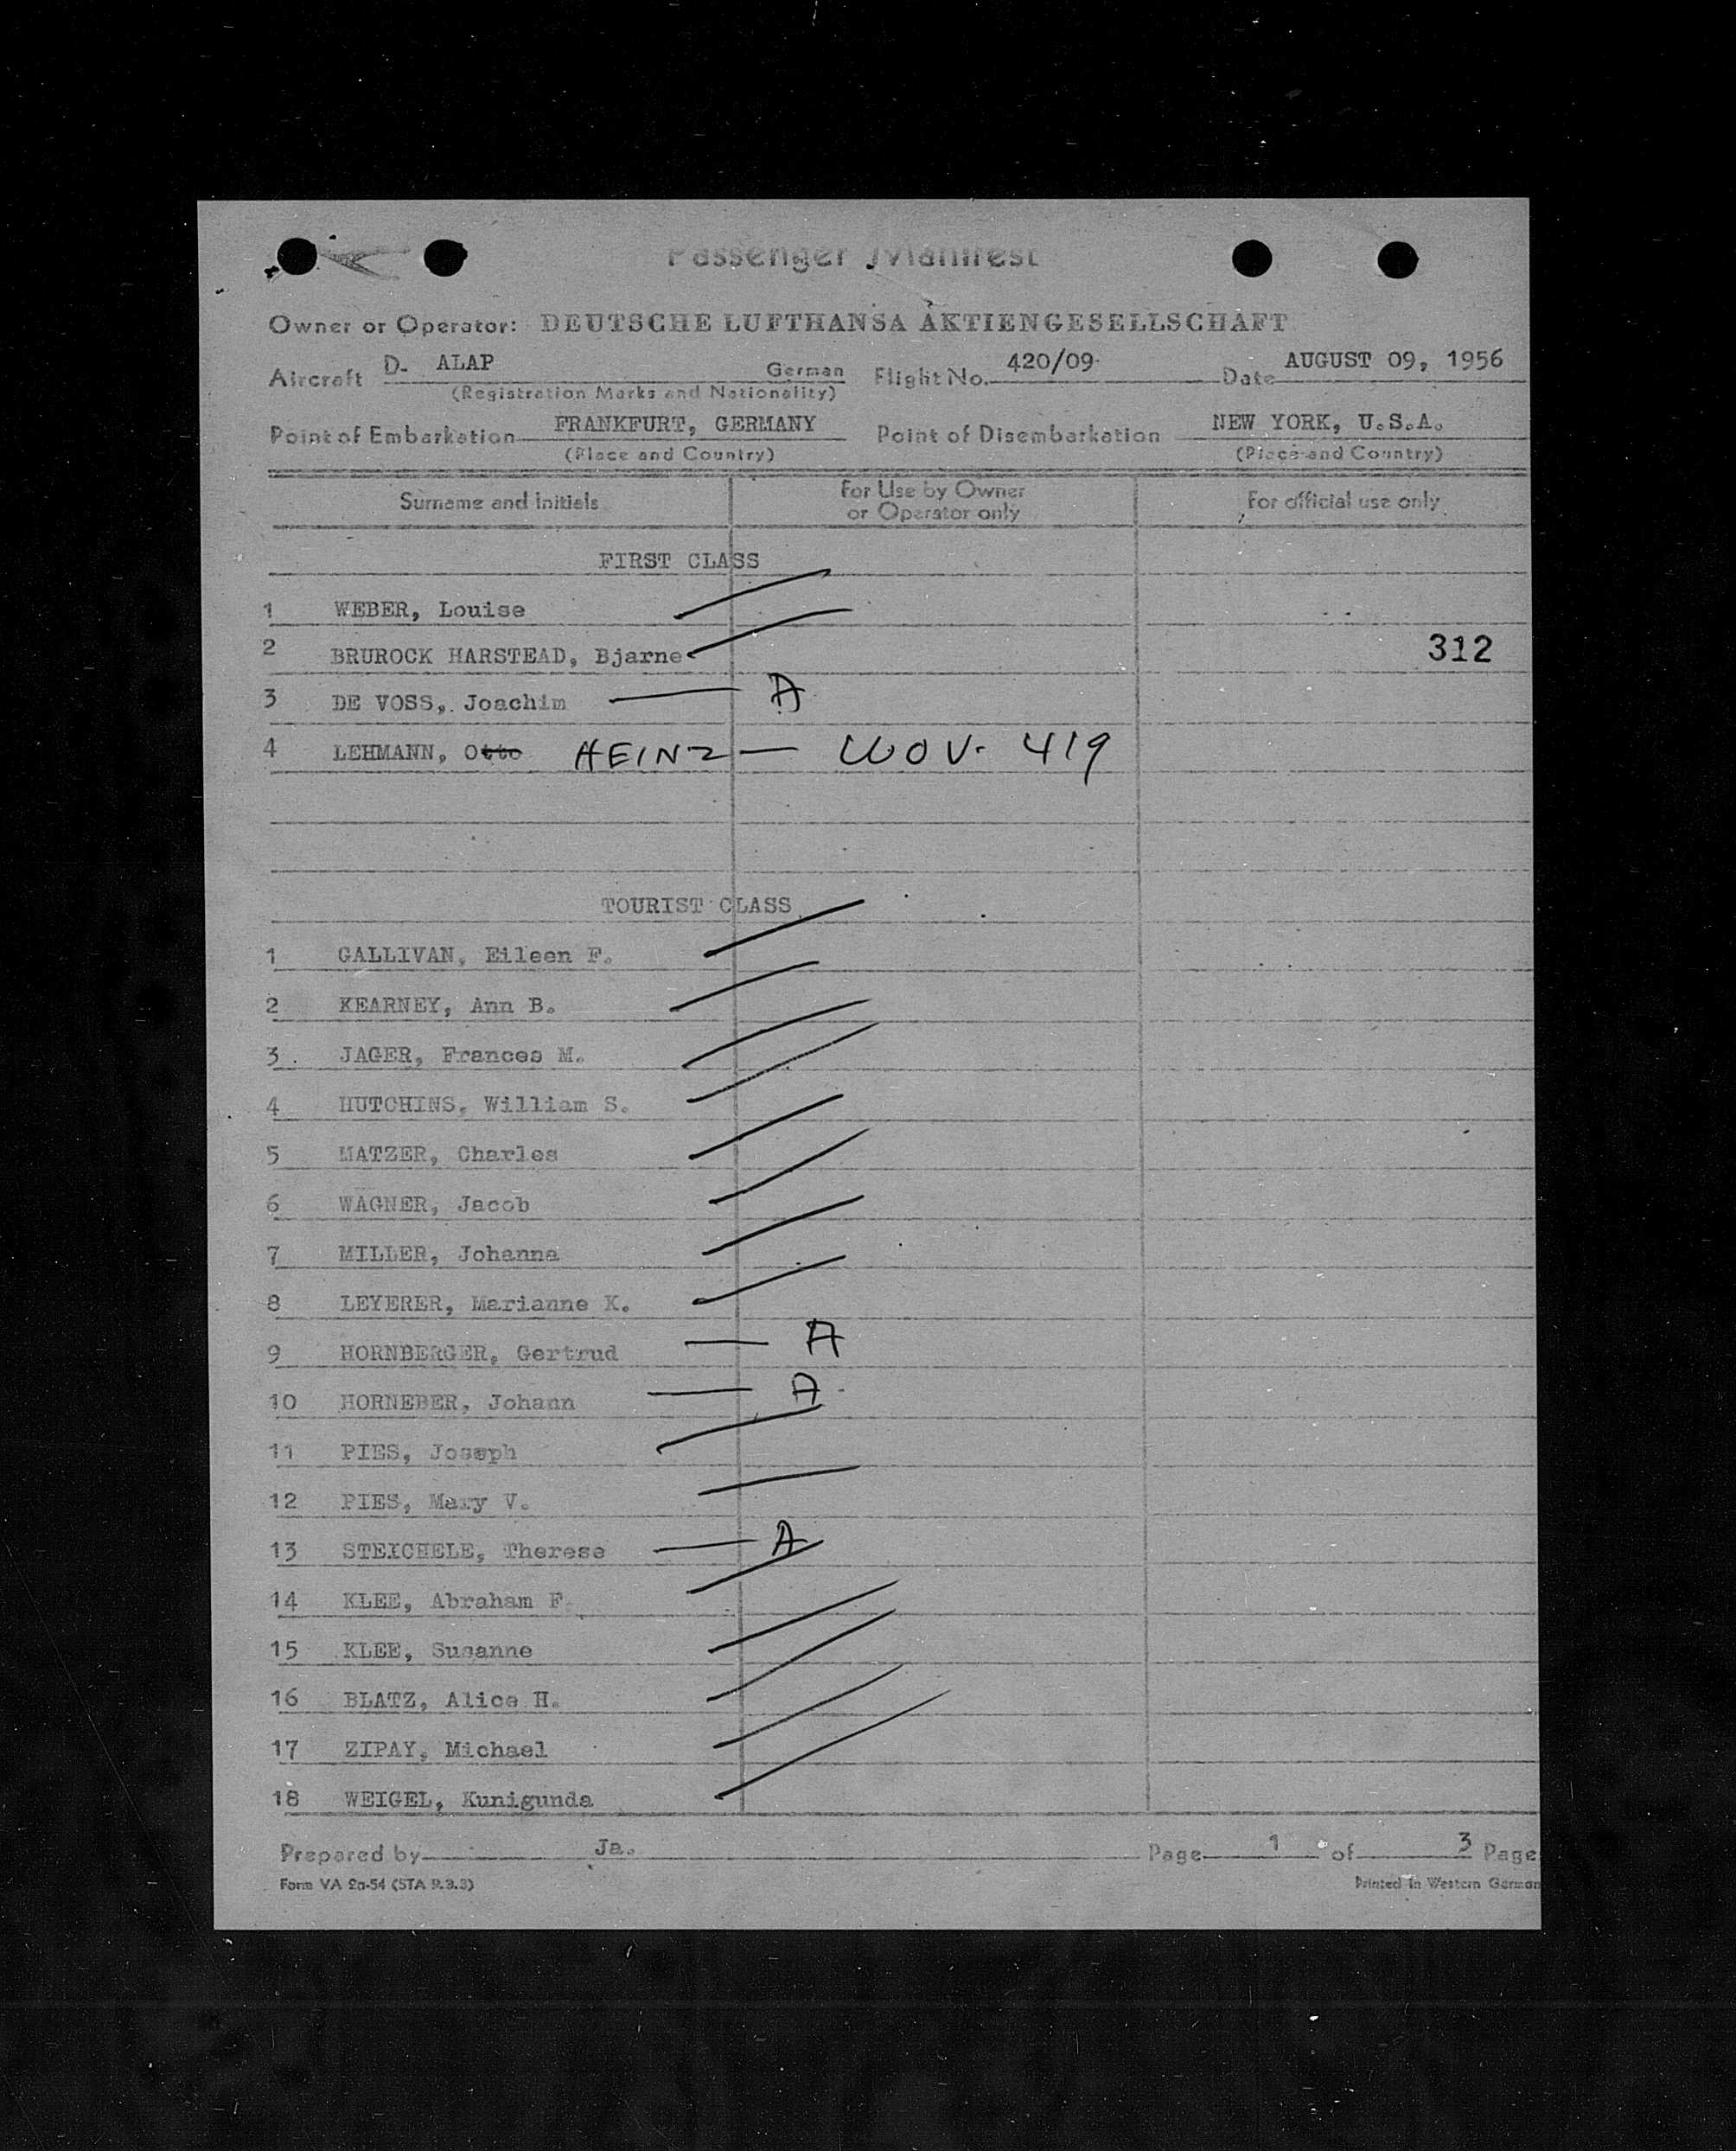 Passenger Manifest
Owner or Operator: DEUTSCHE LUFTHANSA AKTIENGESELLSCHAFT
Aircraft D- ALAP German Flight No. 420/09 Date AUGUST 09, 1956
(Registration Marks and Nationality)
Point of Embarkation FRANKFURT, GERMANY Point of Disembarkation NEW YORK, U.S.A.
(Place and Country) (Place and Country)
Surname and Initials For Use by Owner or Operator only For official use only
FIRST CLASS
1 WEBER, Louise
2 BRUROCK HARSTEAD, Bjarne 312
3 DE VOSS, Joachim — A
4 LEHMANN, Otto HEINZ — WOV. 419
TOURIST CLASS
1 GALLIVAN, Eileen F.
2 KEARNEY, Ann B.
3 JAGER, Frances M.
4 HUTCHINS, William S.
5 MATZER, Charles
6 WAGNER, Jacob
7 MILLER, Johanna
8 LEYERER, Marianne K.
9 HORNBERGER, Gertrud — A
10 HORNEBER, Johann — A
11 PIES, Joseph
12 PIES, Mary V.
13 STEICHELE, Therese — A
14 KLEE, Abraham F.
15 KLEE, Susanne
16 BLATZ, Alice H.
17 ZIPAY, Michael
18 WEIGEL, Kunigunda
Prepared by Ja. Page 1 of 3 Page
Form VA 2a-54 (STA 9.3.3) Printed in Western German